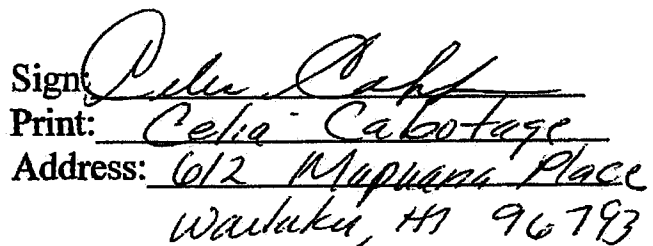 Sign:
Print: Celia Cabotage
Address: 612 Mapuana Place
Wailuku, HI 96793